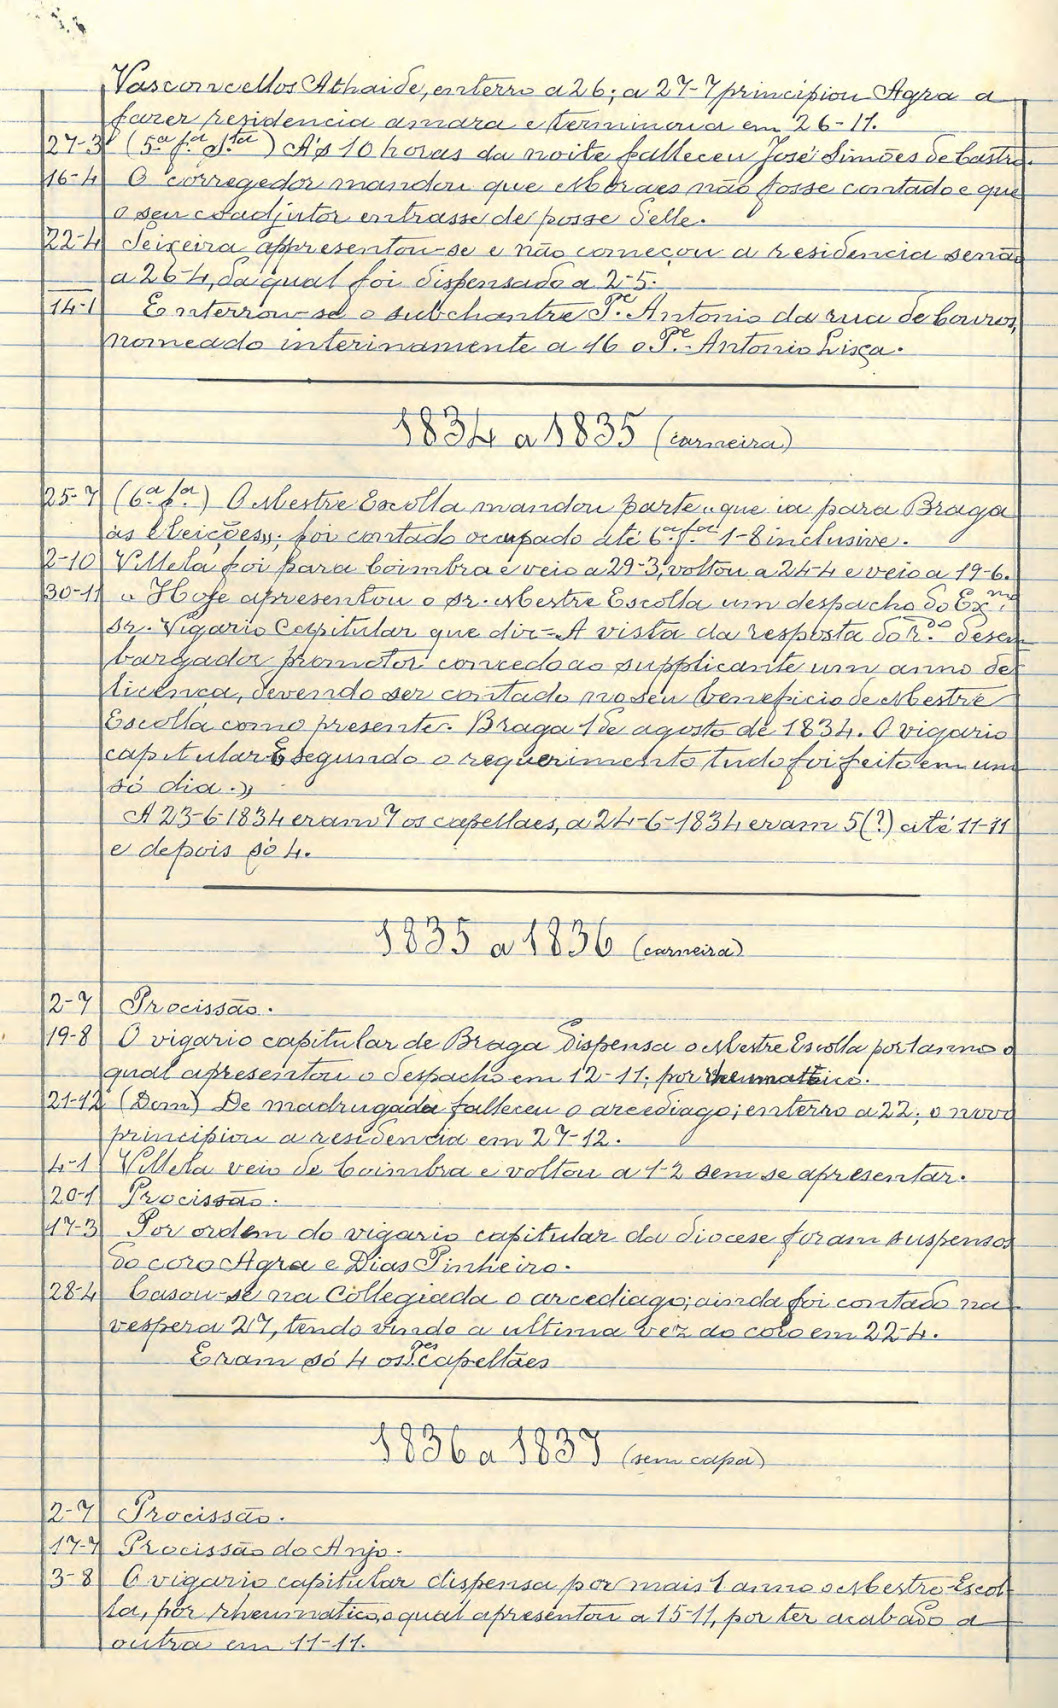 Vasconcellos Athaide, enterro a 26; a 27-7 principiou Agra a
fazer residencia amara e terminou a em 26-11.
27-3 (5.ª f.ª S.ta) A's 10 horas da noite falleceu José Simões de Castro.
16-4 O corregedor mandou que Moraes não fosse contado e que
o seu coadjutor entrasse de posse delle.
22-4 Teixeira appresentou-se e não começou a residencia senão
a 26-4, da qual foi dispensado a 2-5.
14-1 Enterrou-se o subchantre P.e Antonio da rua de Couros,
nomeado interinamente a 16 o P.e Antonio Lisça.
1834 a 1835 (carneira)
25-7 (6.ª f.ª) O Mestre Escolla mandou parte „que ia para Braga
ás eleições„; foi contado ocupado até 6.ª f.ª 1-8 inclusive.
2-10 Villela foi para Coimbra e veio a 29-3, voltou a 24-4 e veio a 19-6.
30-11 „ Hoje apresentou o sr. Mestre Escolla um despacho do Ex.mo
sr. Vigario Capitular que diz = A vista da resposta do r.do desem
bargador promotor concedo ao supplicante um anno de
licença, devendo ser contado no seu beneficio de Mestre
Escolla como presente. Braga 1 de agosto de 1834. O vigario
capitular. E segundo o requerimento tudo foi feito em um
só dia.„
A 23-6-1834 eram 7 os capellaes, a 24-6-1834 eram 5(?) até 11-11
e depois só 4.
1835 a 1836 (carneira)
2-7 Procissão.
19-8 O vigario capitular de Braga dispensa o Mestre Escolla por 1 anno o
qual apresentou o despacho em 12-11; por rheumatico.
21-12 (Dom) De madrugada falleceu o arcediago; enterro a 22; o novo
principiou a residencia em 27-12.
4-1 Villela veio de Coimbra e voltou a 1-2 sem se apresentar.
20-1 Procissão.
17-3 Por ordem do vigario capitular da diocese foram suspensos
do coro Agra e Dias Pinheiro.
28-4 Casou-se na Collegiada o arcediago; ainda foi contado na
vespera 27, tendo vindo a ultima vez ao coro em 22-4.
Eram só 4 os P.es capellães
1836 a 1837 (sem capa)
2-7 Procissão.
17-7 Procissão do Anjo.
3-8 O vigario capitular dispensa por mais 1 anno o Mestre-Escol-
la, por rheumatico, o qual apresentou a 15-11, por ter acabado a
outra em 11-11.